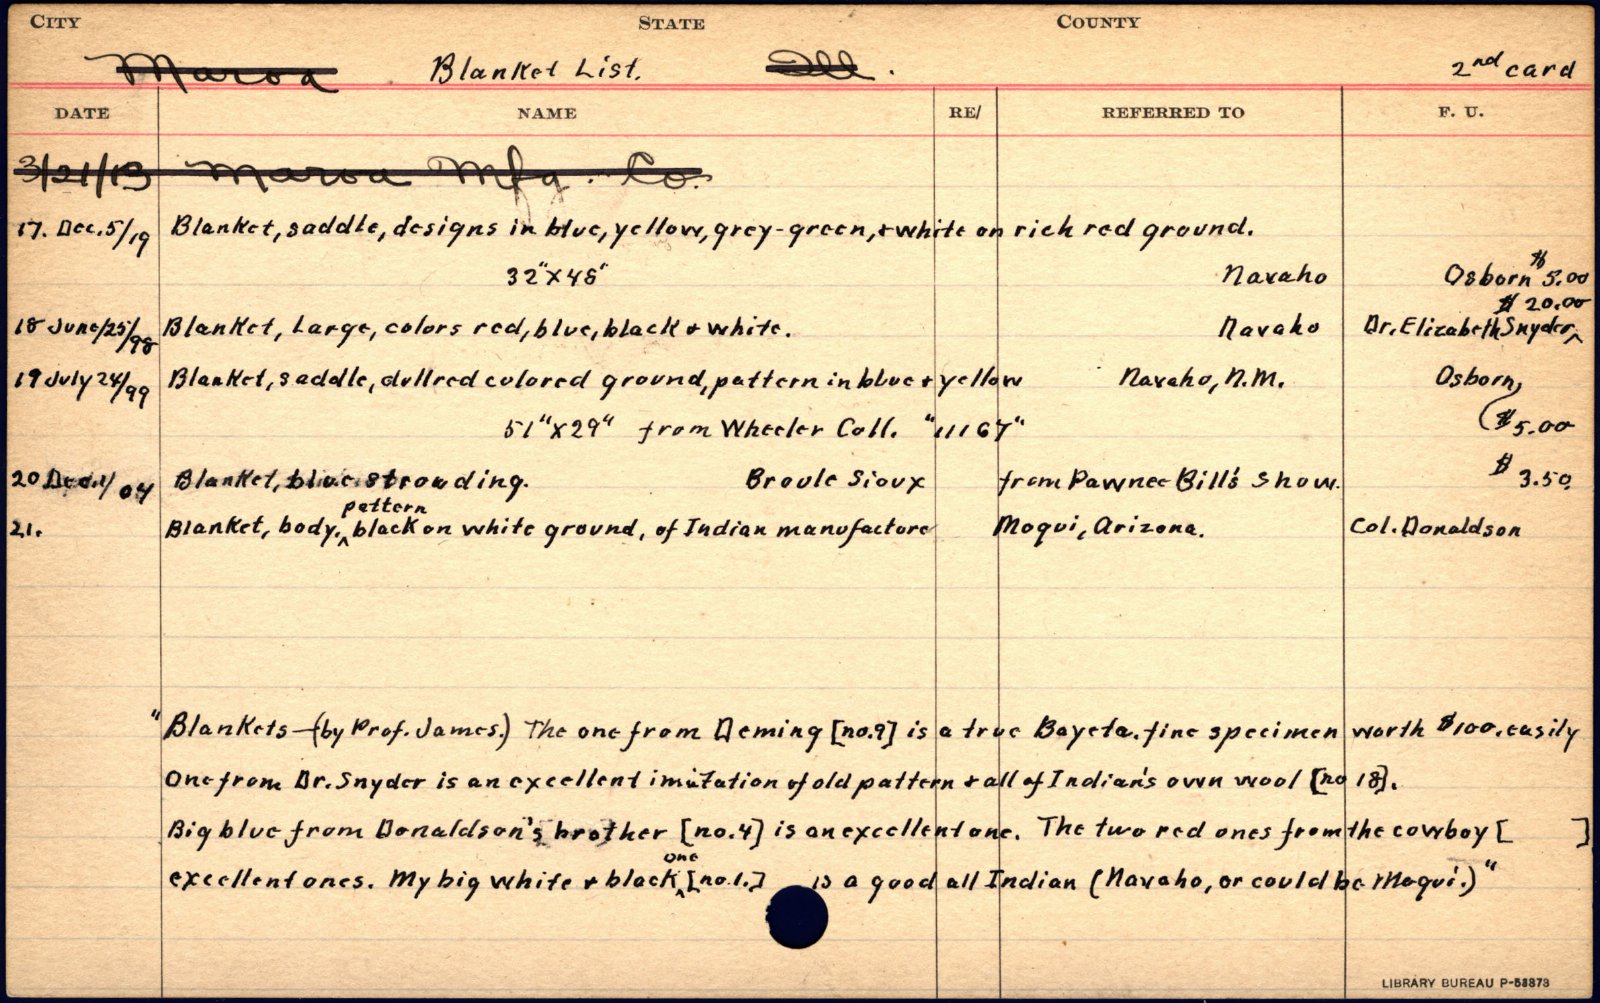 CITY STATE COUNTY
Maroa Blanket List. Ill. 2nd card
DATE NAME RE/ REFERRED TO F. U.
3/21/13 Maroa Mfg. Co.
17. Dec. 5/19 Blanket, saddle, designs in blue, yellow, grey-green, + white on rich red ground.
32" X 48" Navaho Osborn $5.00
$20.00
18 June/25/98 Blanket, Large, colors red, blue, black + white. Navaho Dr. Elizabeth Snyder ^
19 July 24/99 Blanket, saddle, dullred colored ground, pattern in blue + yellow Navaho, N.M. Osborn,
51" X 29" from Wheeler Coll. "11167" ($5.00
20 Dec. 1/04 Blanket, blue strouding. Broule Sioux from Pawnee Bill's show. $3.50
pattern
21. Blanket, body, ^ black on white ground, of Indian manufacture Moqui, Arizona. Col. Donaldson
"Blankets—(by Prof. James.) The one from Deming [no.9] is a true Bayeta. fine specimen worth $100. easily
One from Dr. Snyder is an excellent imitation of old pattern + all of Indian's own wool [no 18].
Big blue from Donaldson's brother [no.4] is an excellent one. The two red ones from the cowboy [ ]
one
excellent ones. My big white + black ^ [no.1.] is a good all Indian (Navaho, or could be Moqui.)"
LIBRARY BUREAU P-53873